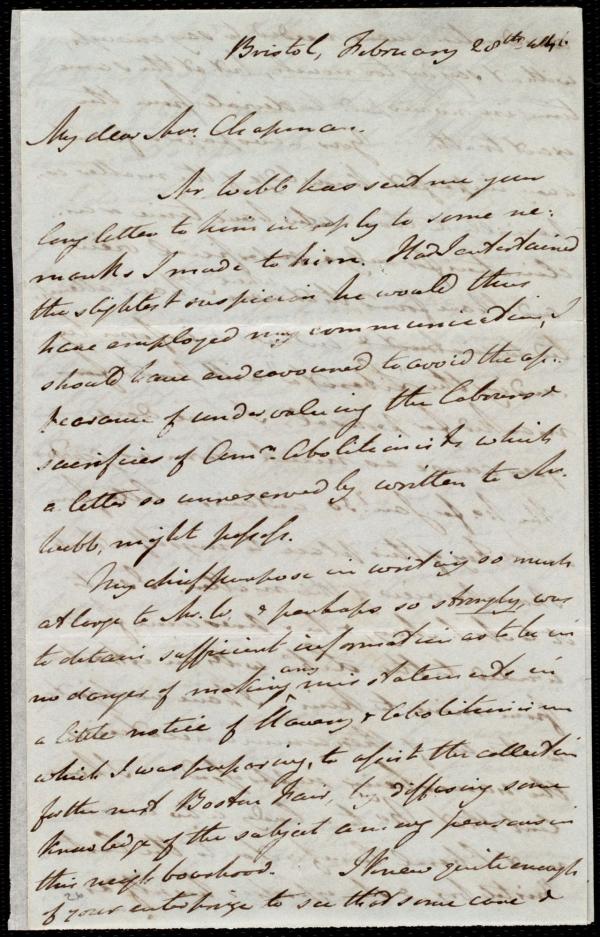 Bristol, February 28th 1846
My dear Mrs. Chapman.
Mr. Webb has sent me your
long letter to him in reply to some re:
marks I made to him. Had I entertained
the slightest suspicion he would thus
have employed my communication, I
should have endeavoured to avoid the ap:
pearance of undervaluing the labours &
sacrifices of Amn. Abolitionists which
a letter so unreservedly written to Mr.
Webb, might possess.
My chief purpose in writing so much
at large to Mr. W. & perhaps so strongly, was
to obtain sufficient information as to be in
no danger of making any misstatements in
a little notice of Slavery & Abolitionism
which I was preparing, to assist the collection
for the next Boston Fair, by diffusing some
knowledge of the subject among persons in
this neighbourhood. I knew quite enough
of your enterprize to see that some care &